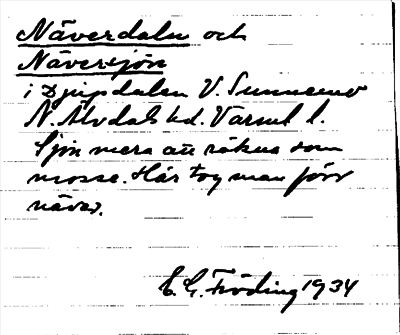 Näverdalen och
Näversjön
i Djupdalen V. Sunnemo
N. Älvdals hd. Värml. l.
Sjön mera att räkna som
mosse. Här tog man förr
näver.
E. G. Fröding 1934